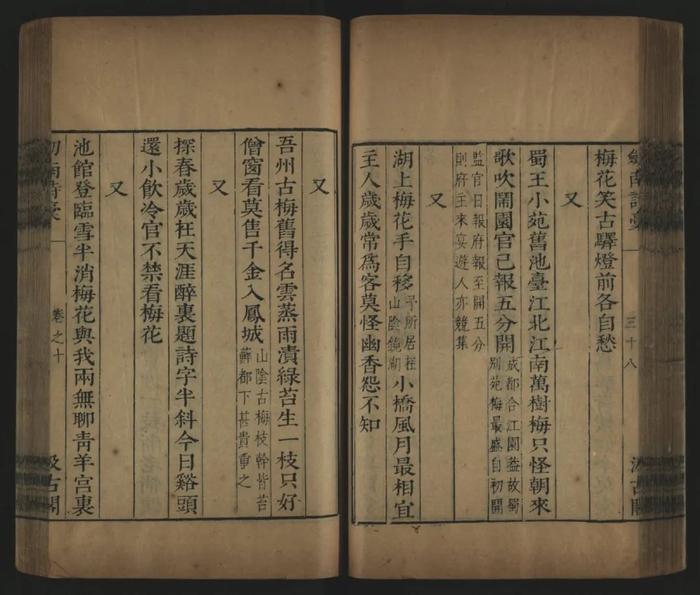 南詩稾
三十八
汲古閣
梅花笑古驛燈前各自愁
又
蜀王小苑舊池臺江北江南萬樹梅只怪朝來
歌吹鬧園官已報五分開
成都合江園葢故蜀
別苑梅最盛自初開
監官日報府報至開五分
則府主來宴遊人亦競集
又
湖上梅花手自移
予所居在
山陰鏡湖
小橋風月最相宜
主人歲歲常爲客莫怪幽香怨不知
又
吾州古梅舊得名雲蒸雨漬綠苔生一枝只好
僧窗看莫售千金入鳳城
山陰古梅枝幹皆苔
蘚都下甚貴重之
又
探春歲歲在天涯醉裏題詩字半斜今日谿頭
還小飲冷官不禁看梅花
又
池館登臨雪半消梅花與我兩無聊靑羊宮裏
南詩稾
卷之十
汲古閣